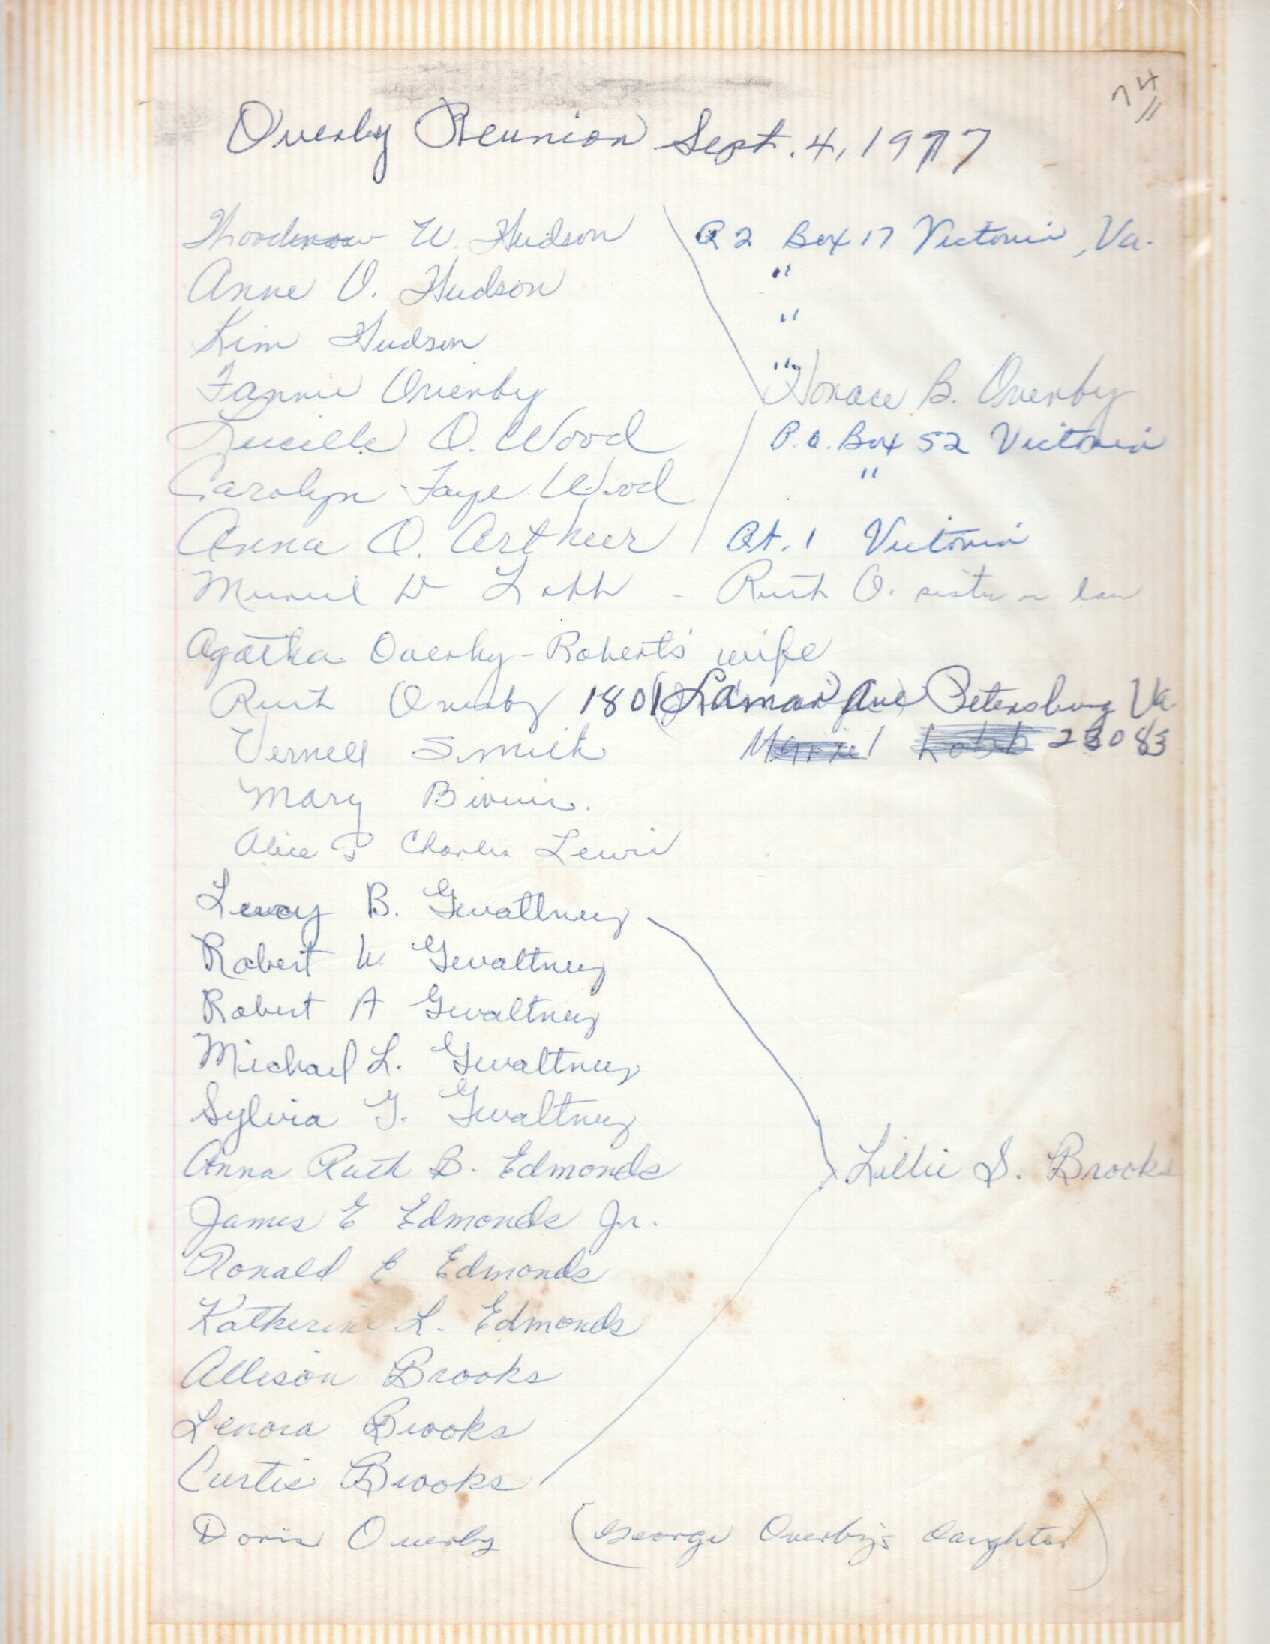 74
11
Overby Reunion Sept. 4, 1977
Woodrow W. Hudson R 2 Box 17 Victoria, Va.
Anne O. Hudson "
Kim Hudson "
Fannie Overby " Horace B. Overby
Lucille O. Wood P.O. Box 52 Victoria
Carolyn Faye Wood "
Anna O. Arthur Rt. 1 Victoria
Muriel W Lobb - Ruth O. sister n law
Agatha Overby - Robert's wife
Ruth Overby 1801 (Lamar) Ave Petersburg Va.
Vernell Smith 23083
Mary Bivins.
Alice & Charles Lewis
Lucy B. Gwaltney
Robert W Gwaltney
Robert A Gwaltney
Michael L. Gwaltney
Sylvia G. Gwaltney
Anna Ruth B. Edmonds Lillie S. Brooks
James E Edmonds Jr.
Ronald E Edmonds
Katherine L. Edmonds
Allison Brooks
Lenora Brooks
Curtis Brooks
Doris Overby (George Overby's daughter)